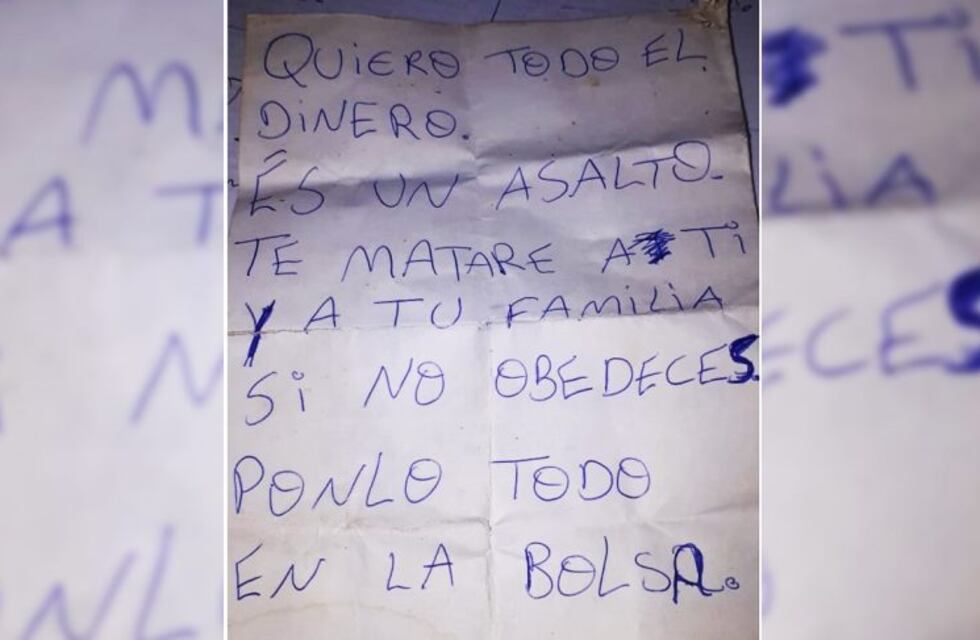 QUIERO TODO EL
DINERO.
ES UN ASALTO.
TE MATARE A TI
Y A TU FAMILIA
Si NO OBEDECES.
PONLO TODO
EN LA BOLSA.